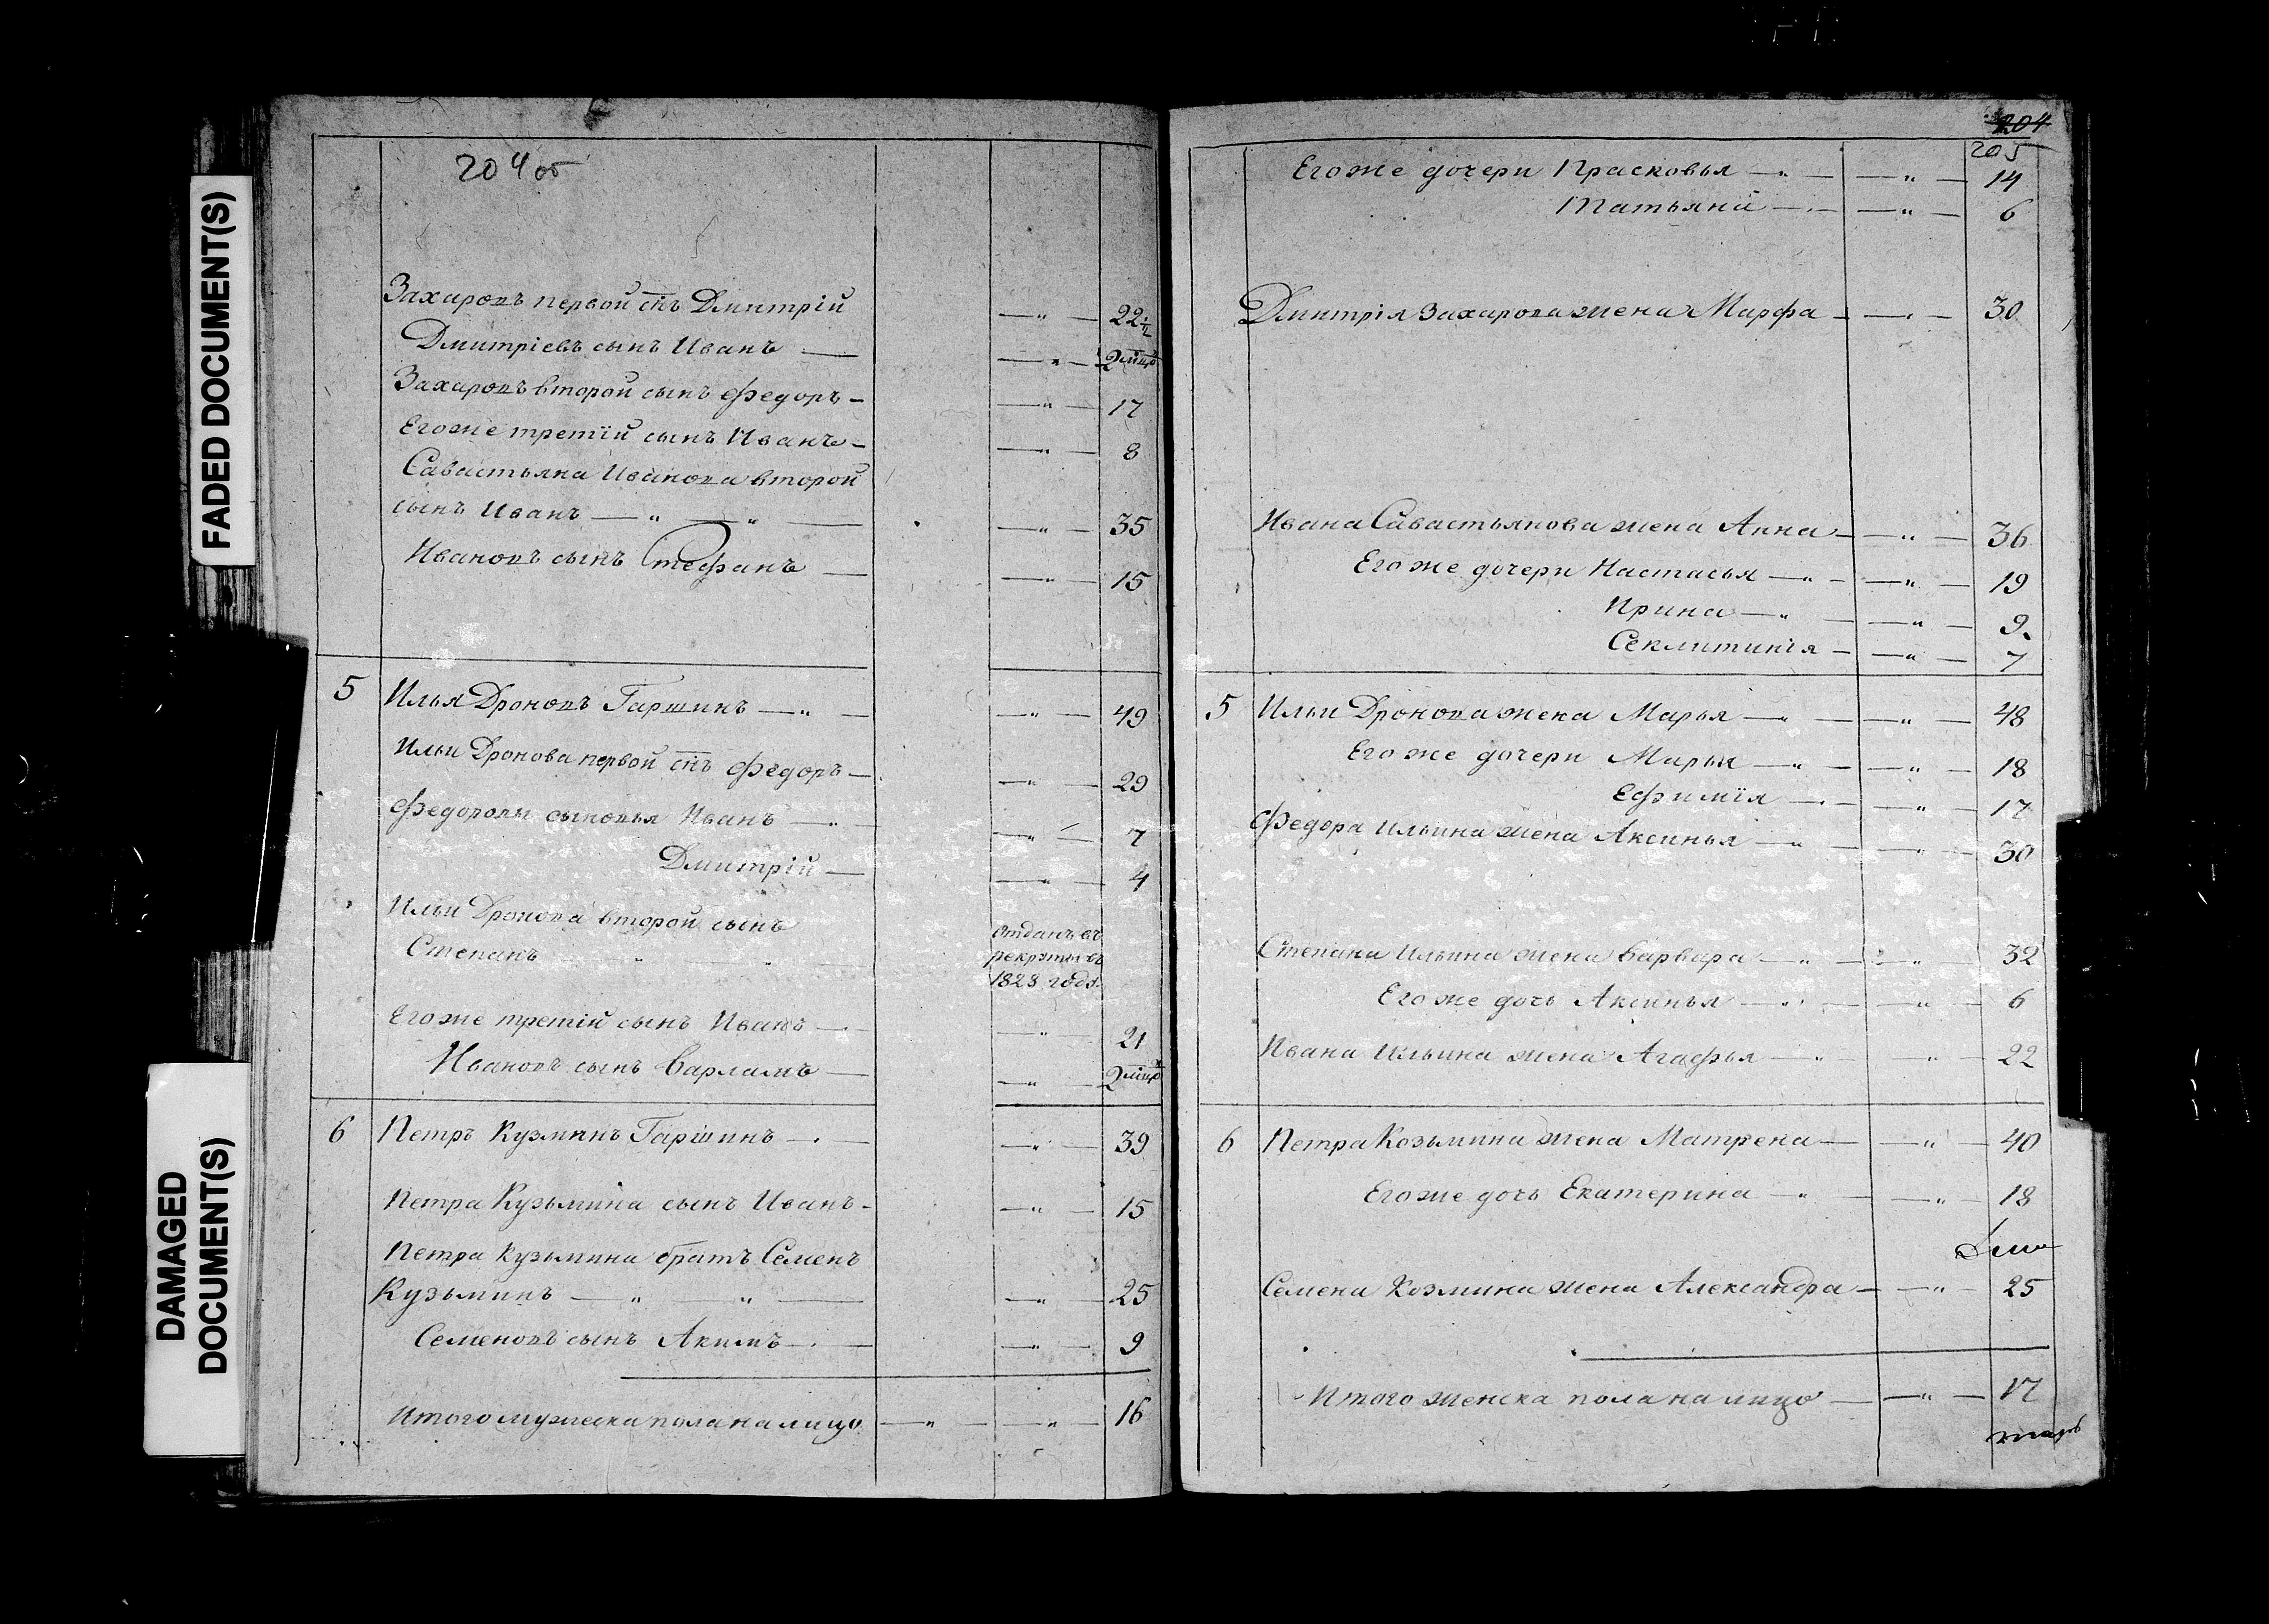 FADED DOCUMENT(S)
DAMAGED
DOCUMENT(S)
204 об
Захаровъ первой снъ Дмитрій — „ — 22 ½
Дмитріевъ сынъ Иванъ — „ — 2 мцо
Захаровъ второй сынъ Федоръ — „ — 17
Егоже третій сынъ Иванъ — „ — 8
Савастьяна Иванова второй
сынъ Иванъ — „ — „ — „ — 35
Ивановъ сынъ Стефанъ — „ — 15
5 Илья Дроновъ Гаршинъ — „ — „ — 49
Ильи Дронова первой снъ Федоръ — „ — 29
Федоровы сыновья Иванъ — „ — „ — 7
Дмитрій — „ — 4
Ильи Дронова второй сынъ
Степанъ „ „
отданъ въ
рекруты въ
1828 году.
Егоже третій сынъ Иванъ — „ — 21
Ивановъ сынъ Варламъ — „ — 2 мцо
6 Петръ Кузминъ Гаршинъ — „ — 39
Петра Кузьмина сынъ Иванъ — „ — 15
Петра Кузьмина братъ Семенъ
Кузьминъ — „ — „ — „ — 25
Семеновъ сынъ Акимъ — „ — 9
Итого мужеска пола на лицо — „ — „ — 16
204
205
Егоже дочери Прасковья — „ — „ — 14
Татьяна — „ — 6
Дмитрія Захарова жена Марфа — „ — 30
Ивана Савастьянова жена Анна — „ — 36
Егоже дочери Настасья — „ — „ — 19
Ирина — „ — „ — 9.
Секлитинія — „ — 7
5 Ильи Дронова жена Марья — „ — „ — 48
Егоже дочери Марья — „ — „ — 18
Ефимія — „ — 17
Федора Ильина жена Аксинья — „ — „ — 30
Степана Ильина жена Варвара — „ — „ — 32
Егоже дочь Аксинья — „ — „ — 6
Ивана Ильина жена Агафья — „ — „ — 22
6 Петра Козьмина жена Матрена — „ — 40
Егоже дочь Екатерина — „ — „ — 18
Семена Козмина жена Александра — „ — 25
Итого женска пола на лицо — „ — 17